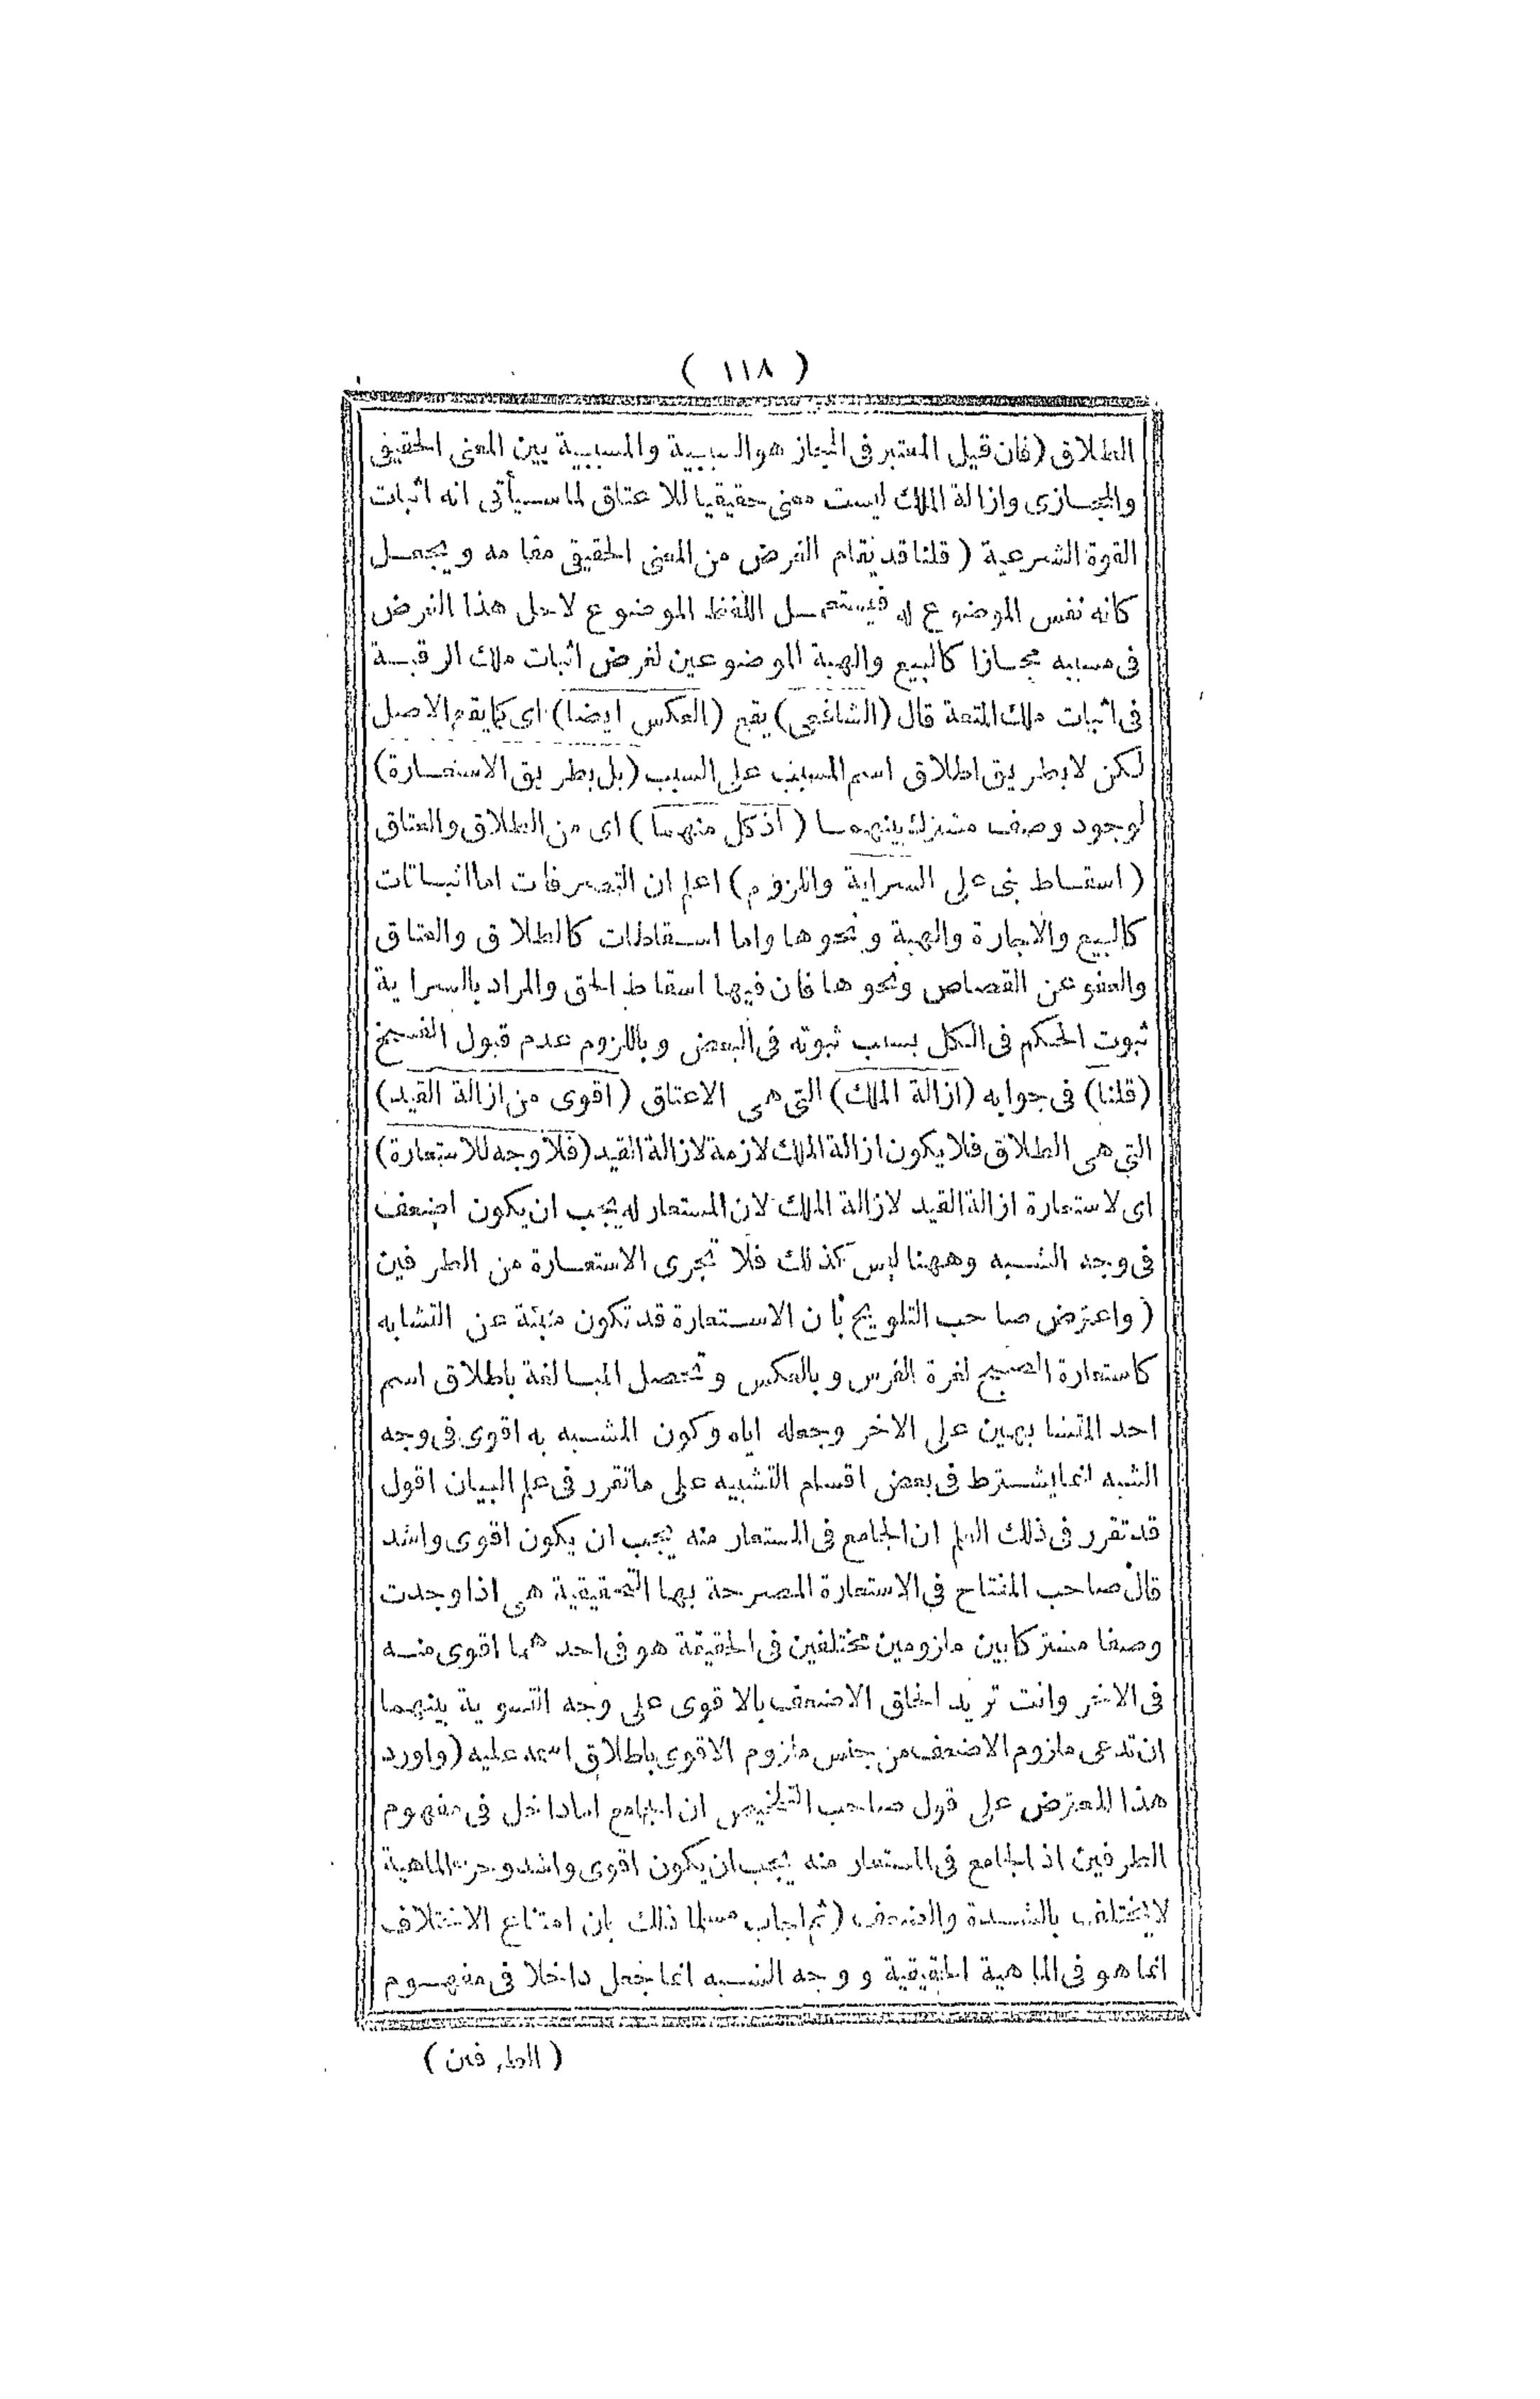 ( ١١٨ )
الطلاق (فان قيل المعتبر فى المجاز هو السببية والمسببية بين المعنى الحقيقى
والمجازى وازالة الملك ليست معنى حقيقيا للاعتاق لما سيأتى انه اثبات
القوة الشرعية ( قلنا قد يقام الغرض من المعنى الحقيقى مقامه ويجعل
كانه نفس الموضوع له فيستعمل اللفظ الموضوع لاجل هذا الغرض
فى مسببه مجازا كالبيع والهبة الموضوعين لغرض اثبات ملك الرقبة
فى اثبات ملك المتعة قال (الشافعى) يقع (العكس ايضا) اى كما يقع الاصل
لكن لا بطريق اطلاق اسم المسبب على السبب (بل بطريق الاستعارة)
لوجود وصف مشترك بينهما ( اذ كل منهما ) اى من الطلاق والعتاق
( اسقاط بنى على السراية واللزوم ) اعلم ان التصرفات اما اثباتات
كالبيع والاجارة والهبة ونحوها واما اسقاطات كالطلاق والعتاق
والعفو عن القصاص ونحوها فان فيها اسقاط الحق والمراد بالسراية
ثبوت الحكم فى الكل بسبب ثبوته فى البعض وباللزوم عدم قبول الفسخ
(قلنا) فى جوابه (ازالة الملك) التى هى الاعتاق (اقوى من ازالة القيد)
التى هى الطلاق فلا يكون ازالة الملك لازمة لازالة القيد (فلا وجه للاستعارة)
اى لاستعارة ازالة القيد لازالة الملك لان المستعار له يجب ان يكون اضعف
فى وجه الشبه وههنا ليس كذلك فلا تجرى الاستعارة من الطرفين
( واعترض صاحب التلويح بان الاستعارة قد تكون مبنية عن التشابه
كاستعارة الصبح لغرة الفرس وبالعكس وتحصل المبالغة باطلاق اسم
احد المتشابهين على الاخر وجعله اياه وكون المشبه به اقوى فى وجه
الشبه انما يشترط فى بعض اقسام التشبيه على ما تقرر فى علم البيان اقول
قد تقرر فى ذلك العلم ان الجامع فى المستعار منه يجب ان يكون اقوى واشد
قال صاحب المفتاح فى الاستعارة المصرحة بها التحقيقية هى اذا وجدت
وصفا مشتركا بين ملزومين مختلفين فى الحقيقة هو فى احدهما اقوى منه
فى الاخر وانت تريد الحاق الاضعف بالاقوى على وجه التسوية بينهما
ان تدعى ملزوم الاضعف من جنس ملزوم الاقوى باطلاق اسمه عليه (واورد
هذا المعترض على قول صاحب التلخيص ان الجامع اما داخل فى مفهوم
الطرفين اذ الجامع فى المستعار منه يجب ان يكون اقوى واشد وجزء الماهية
لا يختلف بالشدة والضعف (ثم اجاب مسلما ذلك بان امتناع الاختلاف
انما هو فى الماهية الحقيقية ووجه الشبه انما جعل داخلا فى مفهوم
( الطرفين )